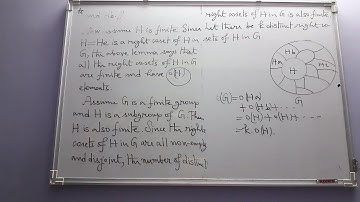 right cosets of H in G is also finite
Now assume H is finite. Since
H=He is a right coset of H in
G, the above lemma says that
all the right cosets of H in G
are finite and have O(H)
elements.
Assume G is a finite group
and H is a subgroup of G. Then
H is also finite. Since the right
cosets of H in G are all non-empty
and disjoint, the number of distinct
Let there be k distinct right co
sets of H in G
H
G
O(G) = O(Ha)
+ O(Hb) + ....
= O(H) + O(H) + ....
= k. O(H).